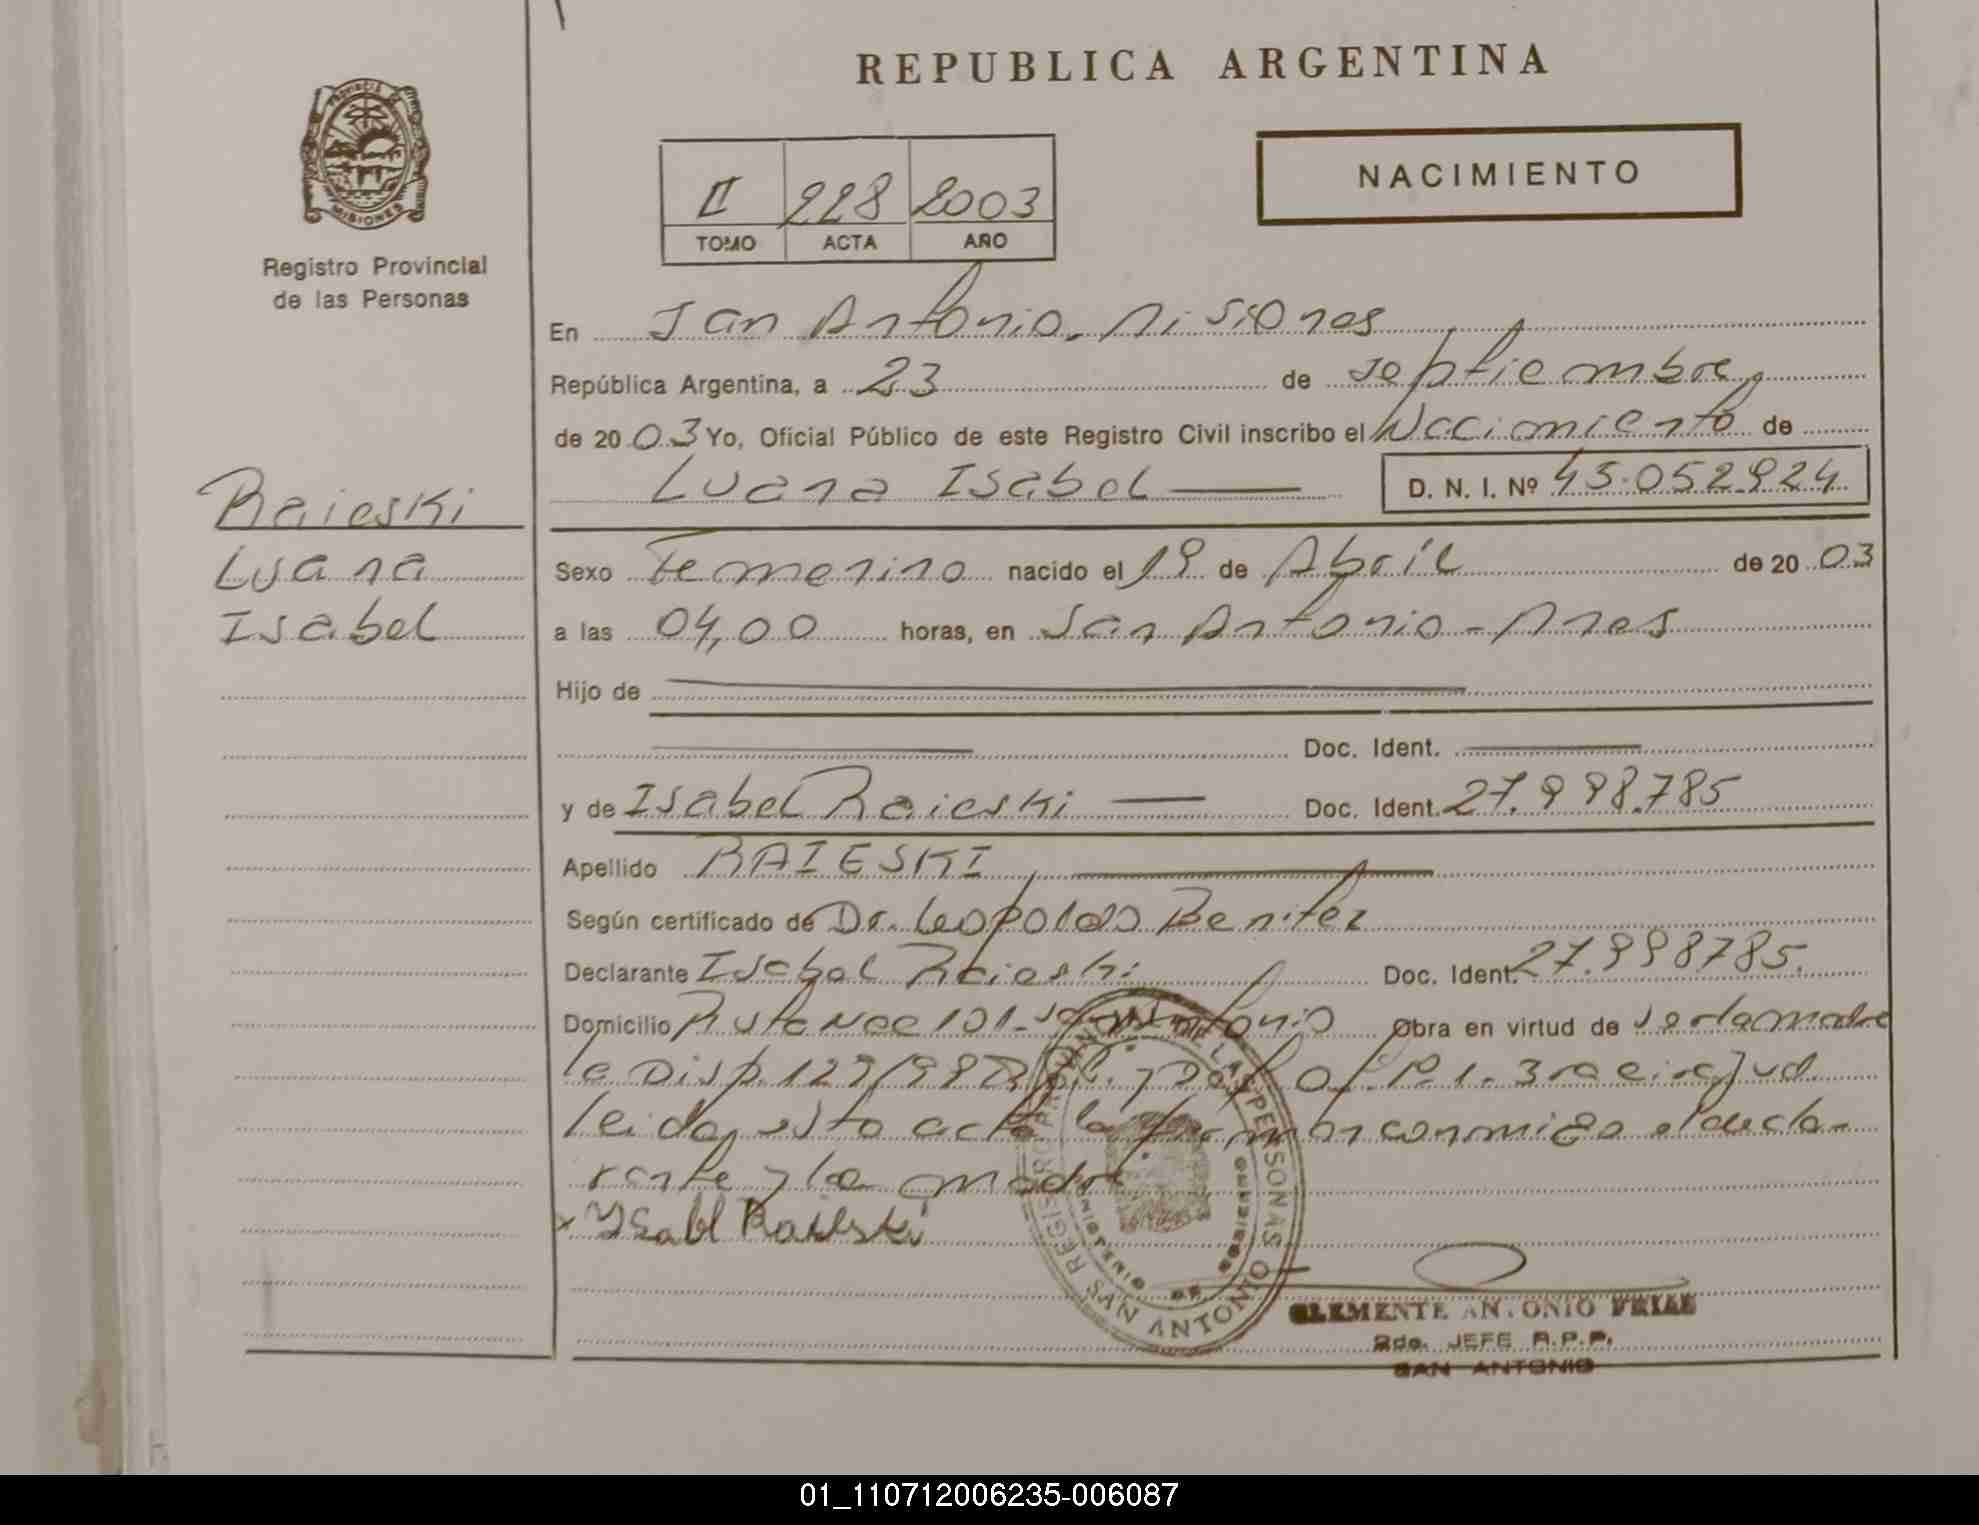 REPUBLICA ARGENTINA
PROVINCIA DE
MISIONES
Registro Provincial
de las Personas
II 228 2003
TOMO ACTA AÑO
NACIMIENTO
En San Antonio. Misiones
República Argentina, a 23 de septiembre
de 2003 Yo, Oficial Público de este Registro Civil inscribo el Nacimiento de
Luana Isabel D. N. I. Nº 45.052.924
Raieski
Luana
Isabel
Sexo Femenino nacido el 19 de Abril de 2003
a las 04,00 horas, en San Antonio - Mnes
Hijo de
Doc. Ident.
y de Isabel Raieski Doc. Ident. 27.998.785
Apellido RAIESKI
Según certificado de Dr. Leopoldo Benitez
Declarante Isabel Raieski Doc. Ident. 27.998785.
Domicilio Ruta Nac 101 - San Antonio Obra en virtud de ser la madre
la Disp. 129/98
leida esta acta la firman conmigo el decla-
rante y la madre
x Ysabel Raieski
REGISTRO PROVINCIAL DE LAS PERSONAS
MINISTERIO DE GOBIERNO
SAN ANTONIO
CLEMENTE ANTONIO
2do. JEFE R.P.P.
SAN ANTONIO
01_110712006235-006087